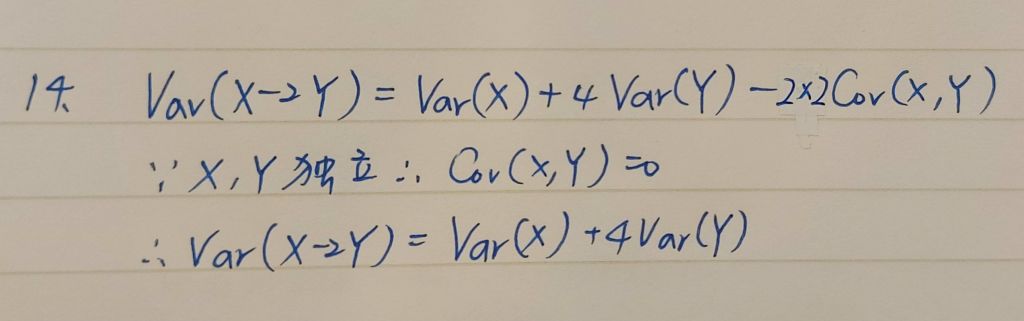 14. Var(X-2Y) = Var(X) + 4 Var(Y) - 2×2Cov(X,Y)
∵ X,Y 独立 ∴ Cov(X,Y)=0
∴ Var(X-2Y) = Var(X) +4Var(Y)